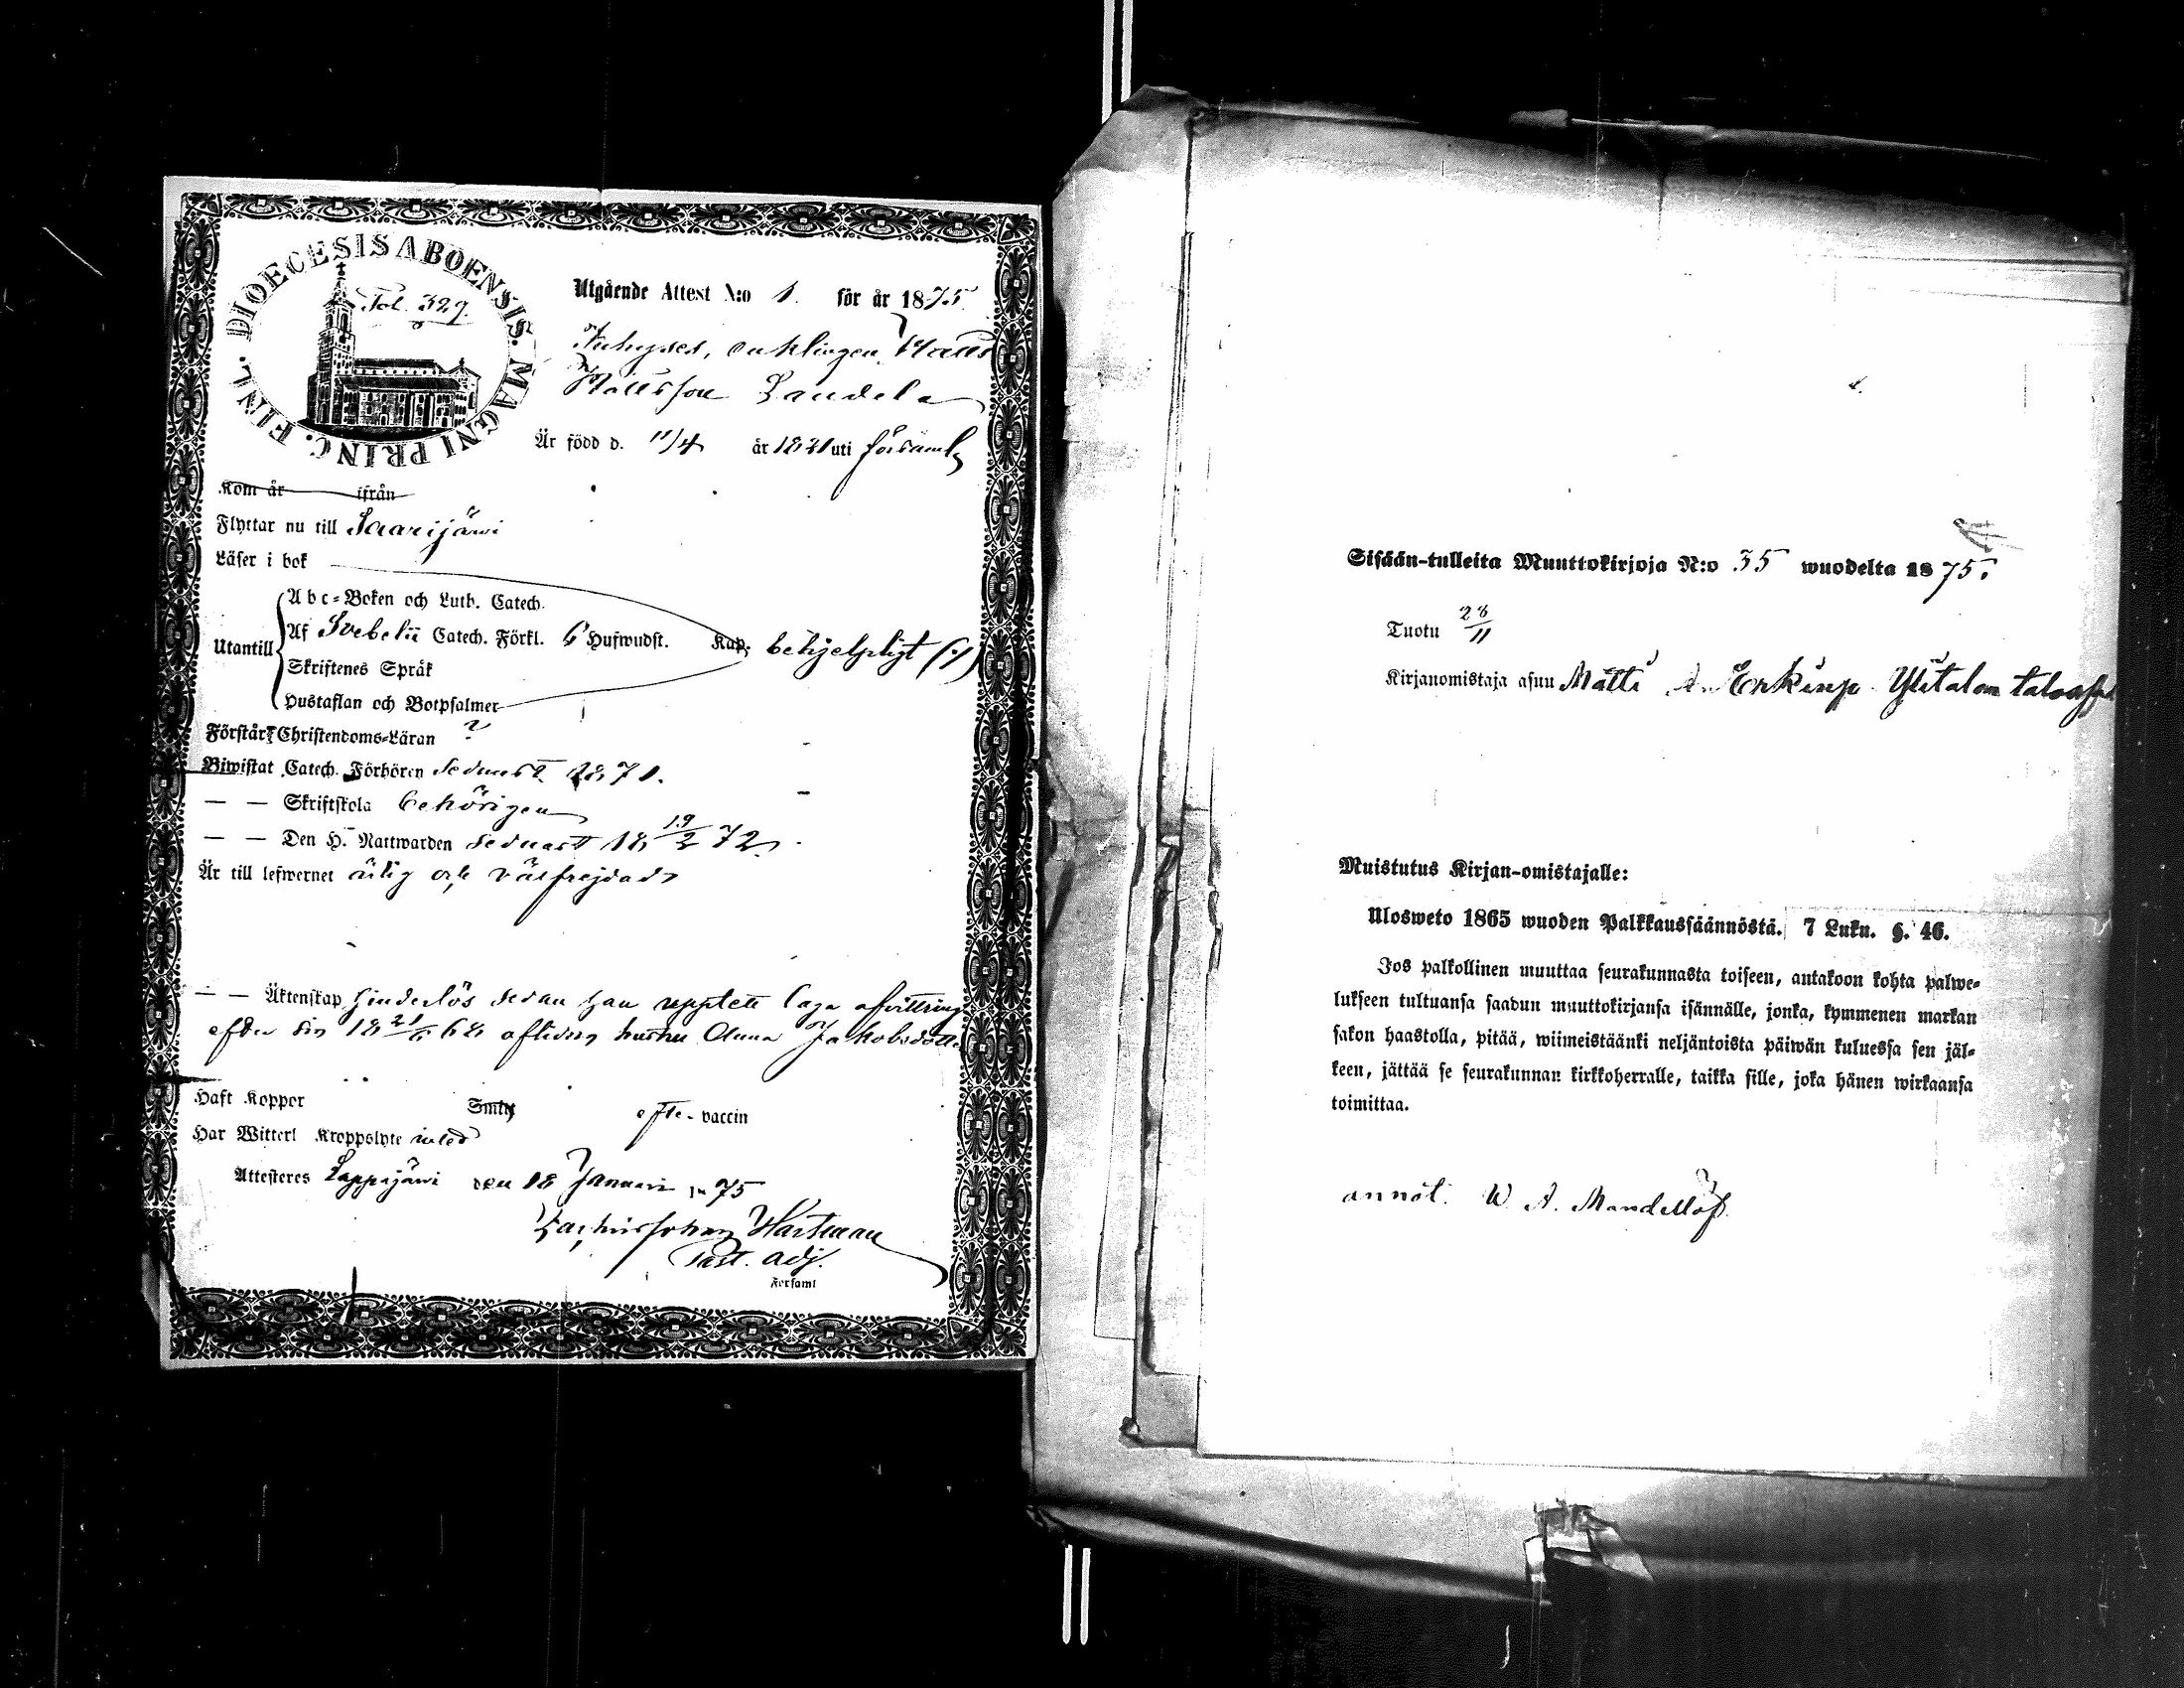 DIOECESIS ABOENSIS. MAGNI PRINC. FINL.
Fol. 329.
Utgående Attest N:o 1. för år 1875
Inhyses, enklingen Matts
Mattsson Landela
Är född d. 11/4 år 1821 uti församlg
Kom år ifrån
Flyttar nu till Saarijärwi
Läser i bok
Utantill
Abc-Boken och Luth. Catech.
Af Svebelii Catech. Förkl. 6 Hufwudst. Kap. behjelpligt (:/.)
Skriftenes Språk
Hustaflan och Botpsalmer
Förstår Christendoms-Läran ?
Biwistat Catech. Förhören sednast 1871.
— — Skriftskola behörigen
— — Den H. Nattwarden sednast 18 19/2 72.
Är till lefwernet ärlig och välfrejdad
— — Äktenskap hinderlös sedan han upptett laga afvittring
efter sin 18 21/6 68 aflidne hustru Anna Jakobsdotter
Haft Koppor Smitt efter vaccin
Har Witterl Kroppslyte intet
Attesteres Lappajärwi den 18 Januari 1875
Johan Hartman
Past. adj.
Forsaml
Sisään-tulleita Muuttokirjoja N:o 35 wuodelta 1875.
Tuotu 28/11
Kirjanomistaja asuu Matti A. Erkinp. Ylitalon talossa
Muistutus Kirjan-omistajalle:
Ulosweto 1865 wuoden Palkkaussäännöstä. 7 Luku. §. 46.
Jos palkollinen muuttaa seurakunnasta toiseen, antakoon kohta palwe-
lukseen tultuansa saadun muuttokirjansa isännälle, jonka, kymmenen markan
sakon haastolla, pitää, wiimeistäänki neljäntoista päiwän kuluessa sen jäl-
keen, jättää se seurakunnan kirkkoherralle, taikka sille, joka hänen wirkaansa
toimittaa.
annot. W. A. Mandellöf